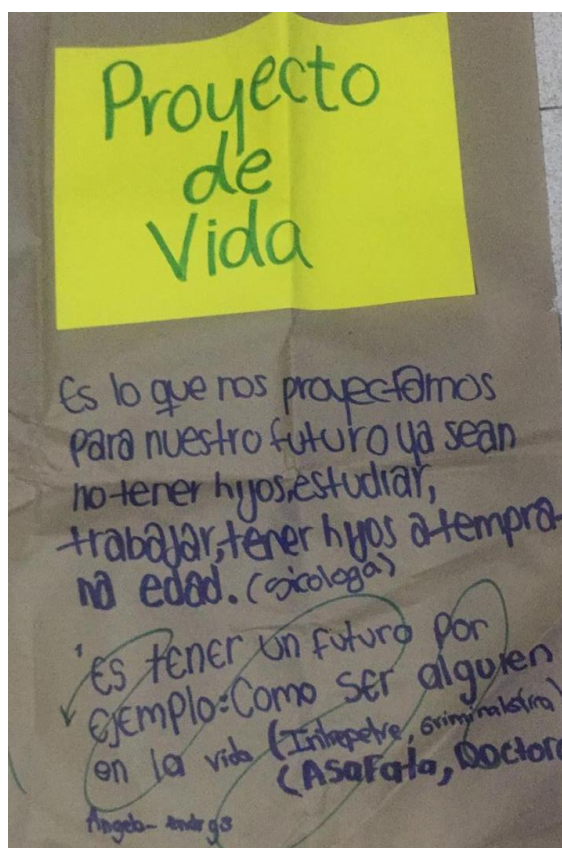 Proyecto
de
Vida
Es lo que nos proyectamos
para nuestro futuro ya sean
no tener hijos, estudiar,
trabajar, tener hijos a tempra-
na edad. (sicologa)
Es tener un futuro por
ejemplo: Como ser alguien
en la vida (Intrepetre, Griminalistica)
(Asafata, Doctora
Angela-